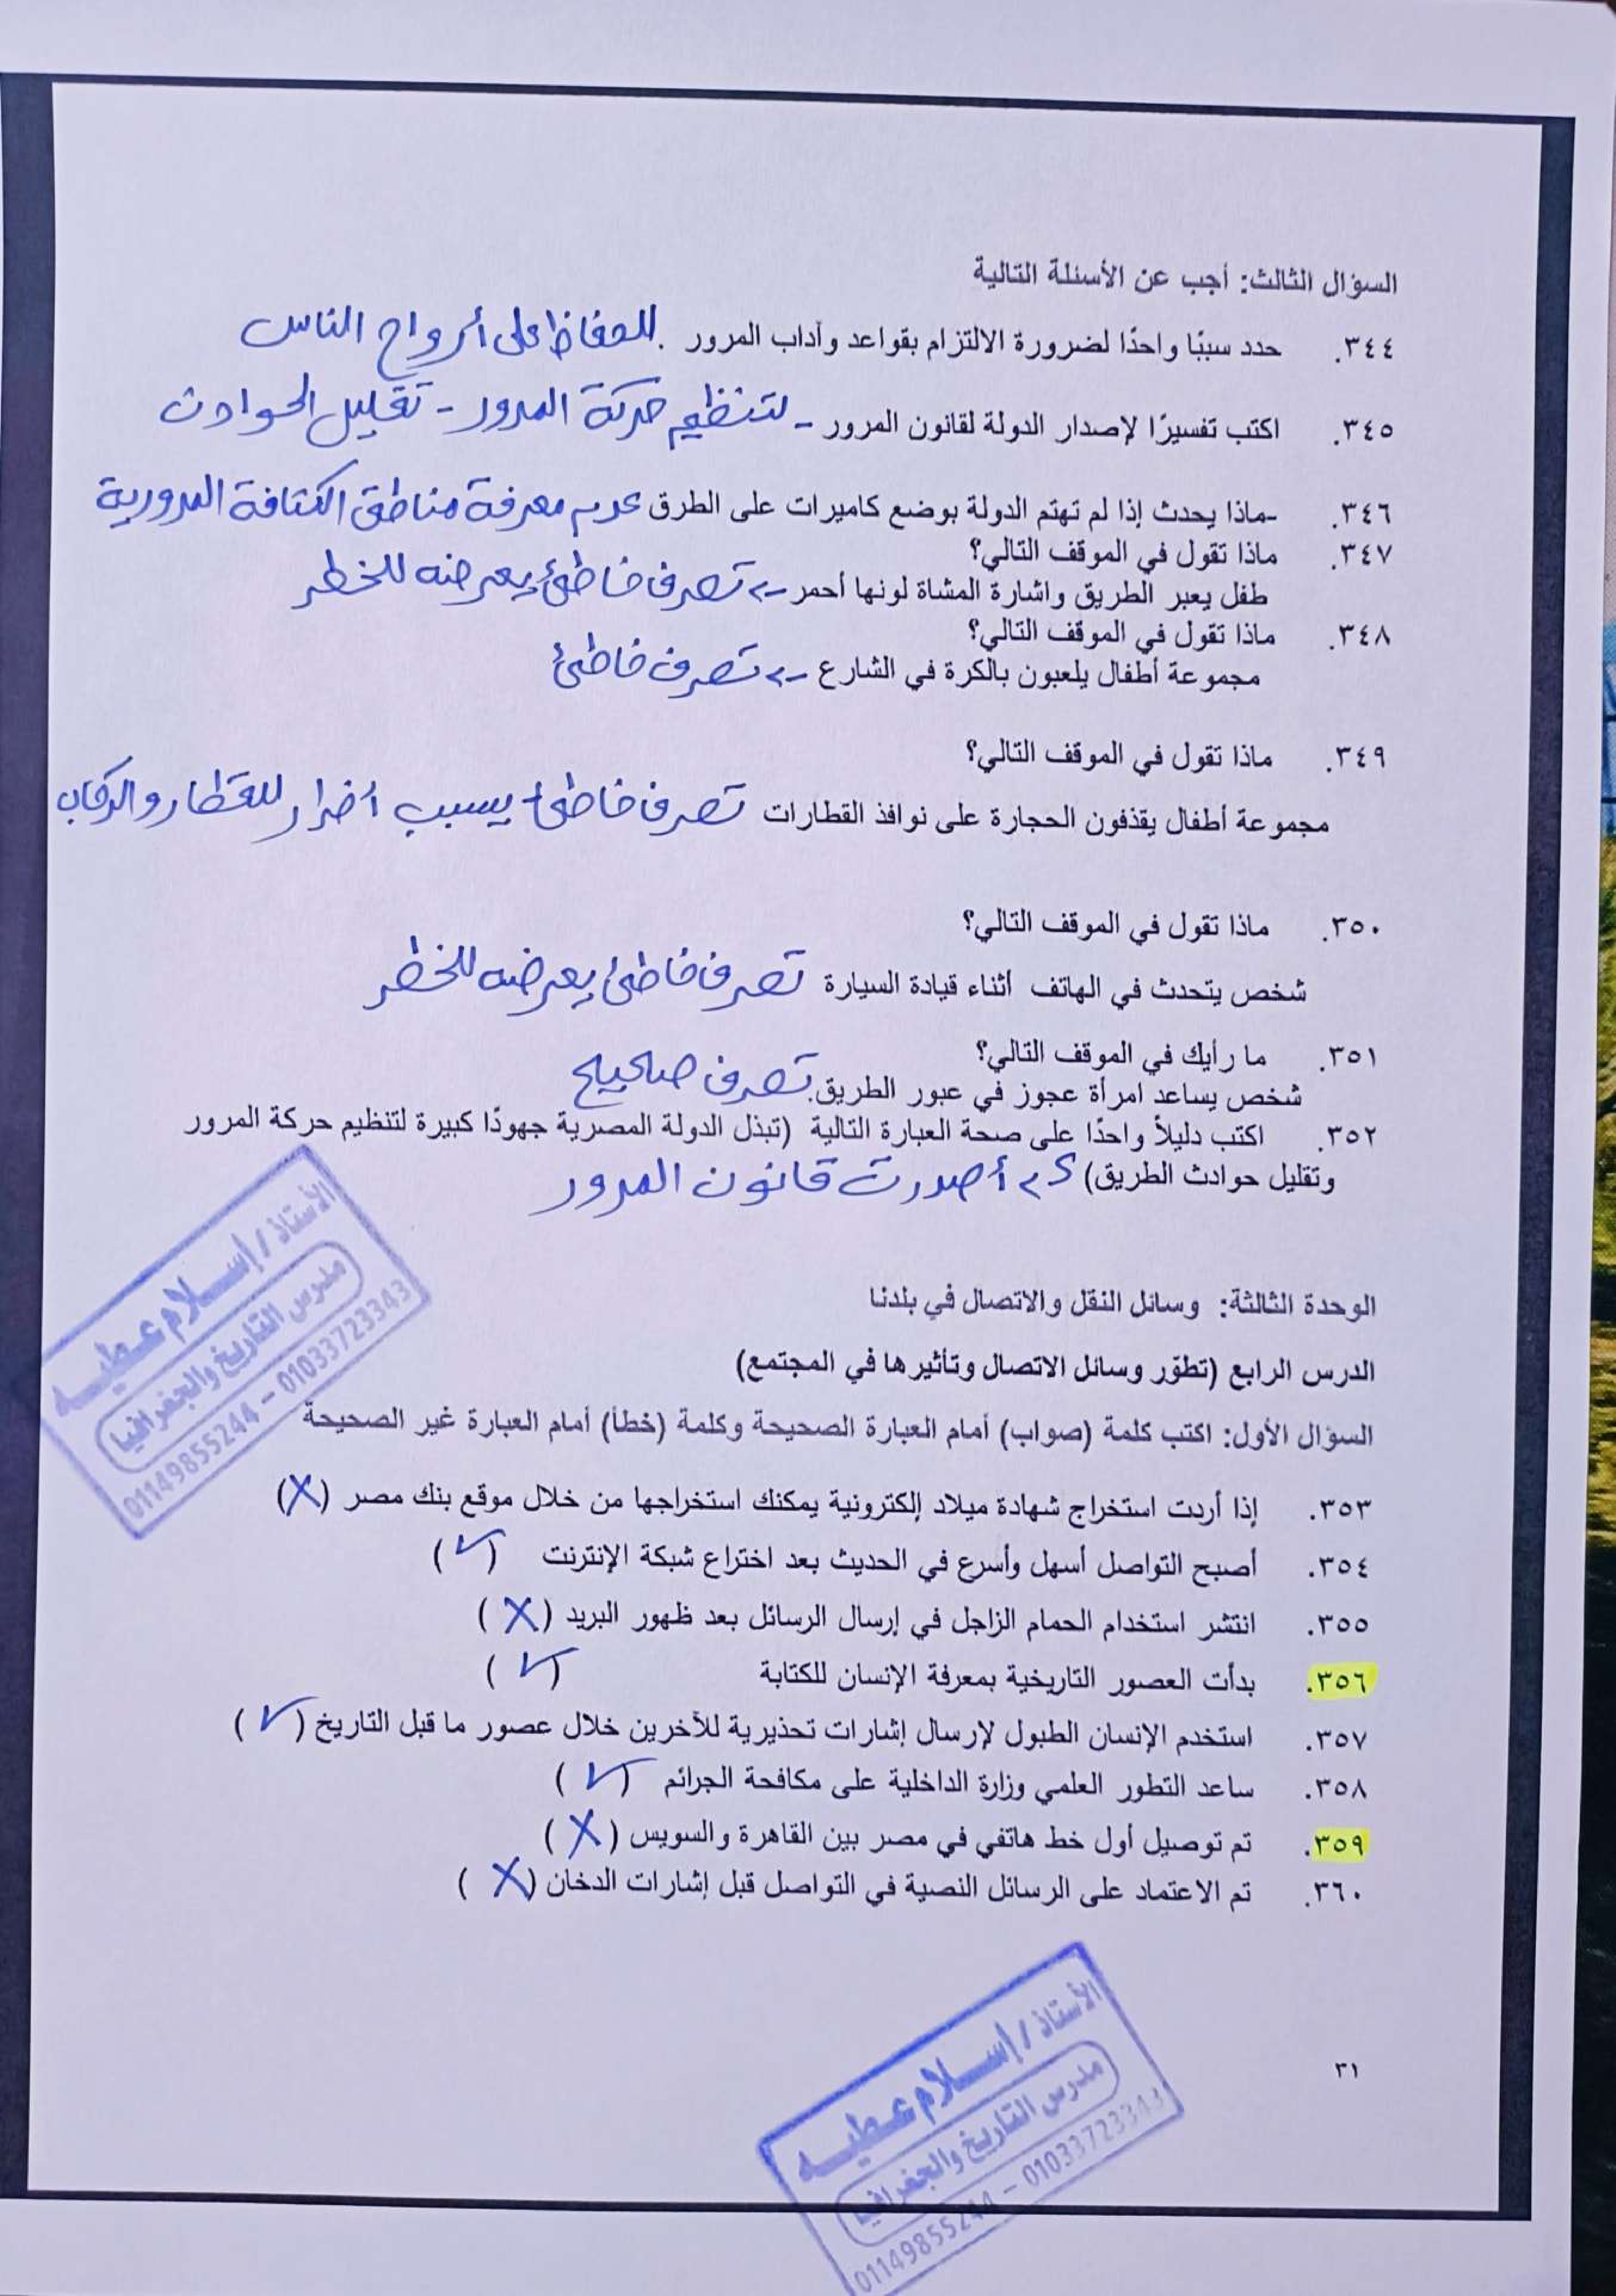 السؤال الثالث: أجب عن الأسئلة التالية
٣٤٤. حدد سببًا واحدًا لضرورة الالتزام بقواعد وآداب المرور . للحفاظ على أرواح الناس
٣٤٥. اكتب تفسيرًا لإصدار الدولة لقانون المرور - لتنظيم حركة المرور - تقليل الحوادث
٣٤٦. -ماذا يحدث إذا لم تهتم الدولة بوضع كاميرات على الطرق عدم معرفة مناطق الكثافة المرورية
٣٤٧. ماذا تقول في الموقف التالي؟
طفل يعبر الطريق واشارة المشاة لونها أحمر -> تصرف خاطئ يعرضه للخطر
٣٤٨. ماذا تقول في الموقف التالي؟
مجموعة أطفال يلعبون بالكرة في الشارع -> تصرف خاطئ
٣٤٩. ماذا تقول في الموقف التالي؟
مجموعة أطفال يقذفون الحجارة على نوافذ القطارات تصرف خاطئ يسبب أضرار للقطار والركاب
٣٥٠. ماذا تقول في الموقف التالي؟
شخص يتحدث في الهاتف أثناء قيادة السيارة تصرف خاطئ يعرضه للخطر
٣٥١. ما رأيك في الموقف التالي؟
شخص يساعد امرأة عجوز في عبور الطريق. تصرف صحيح
٣٥٢. اكتب دليلاً واحدًا على صحة العبارة التالية (تبذل الدولة المصرية جهودًا كبيرة لتنظيم حركة المرور
وتقليل حوادث الطريق) أصدرت قانون المرور
الأستاذ / إسلام عطيه
مدرس التاريخ والجغرافيا
01149855244 - 01033723343
الوحدة الثالثة: وسائل النقل والاتصال في بلدنا
الدرس الرابع (تطوّر وسائل الاتصال وتأثيرها في المجتمع)
السؤال الأول: اكتب كلمة (صواب) أمام العبارة الصحيحة وكلمة (خطأ) أمام العبارة غير الصحيحة
٣٥٣. إذا أردت استخراج شهادة ميلاد إلكترونية يمكنك استخراجها من خلال موقع بنك مصر (X)
٣٥٤. أصبح التواصل أسهل وأسرع في الحديث بعد اختراع شبكة الإنترنت (✓)
٣٥٥. انتشر استخدام الحمام الزاجل في إرسال الرسائل بعد ظهور البريد (X)
٣٥٦. بدأت العصور التاريخية بمعرفة الإنسان للكتابة (✓)
٣٥٧. استخدم الإنسان الطبول لإرسال إشارات تحذيرية للآخرين خلال عصور ما قبل التاريخ (✓)
٣٥٨. ساعد التطور العلمي وزارة الداخلية على مكافحة الجرائم (✓)
٣٥٩. تم توصيل أول خط هاتفي في مصر بين القاهرة والسويس (X)
٣٦٠. تم الاعتماد على الرسائل النصية في التواصل قبل إشارات الدخان (X)
٣١
الأستاذ / إسلام عطيه
مدرس التاريخ والجغرافيا
01149855244 - 01033723343